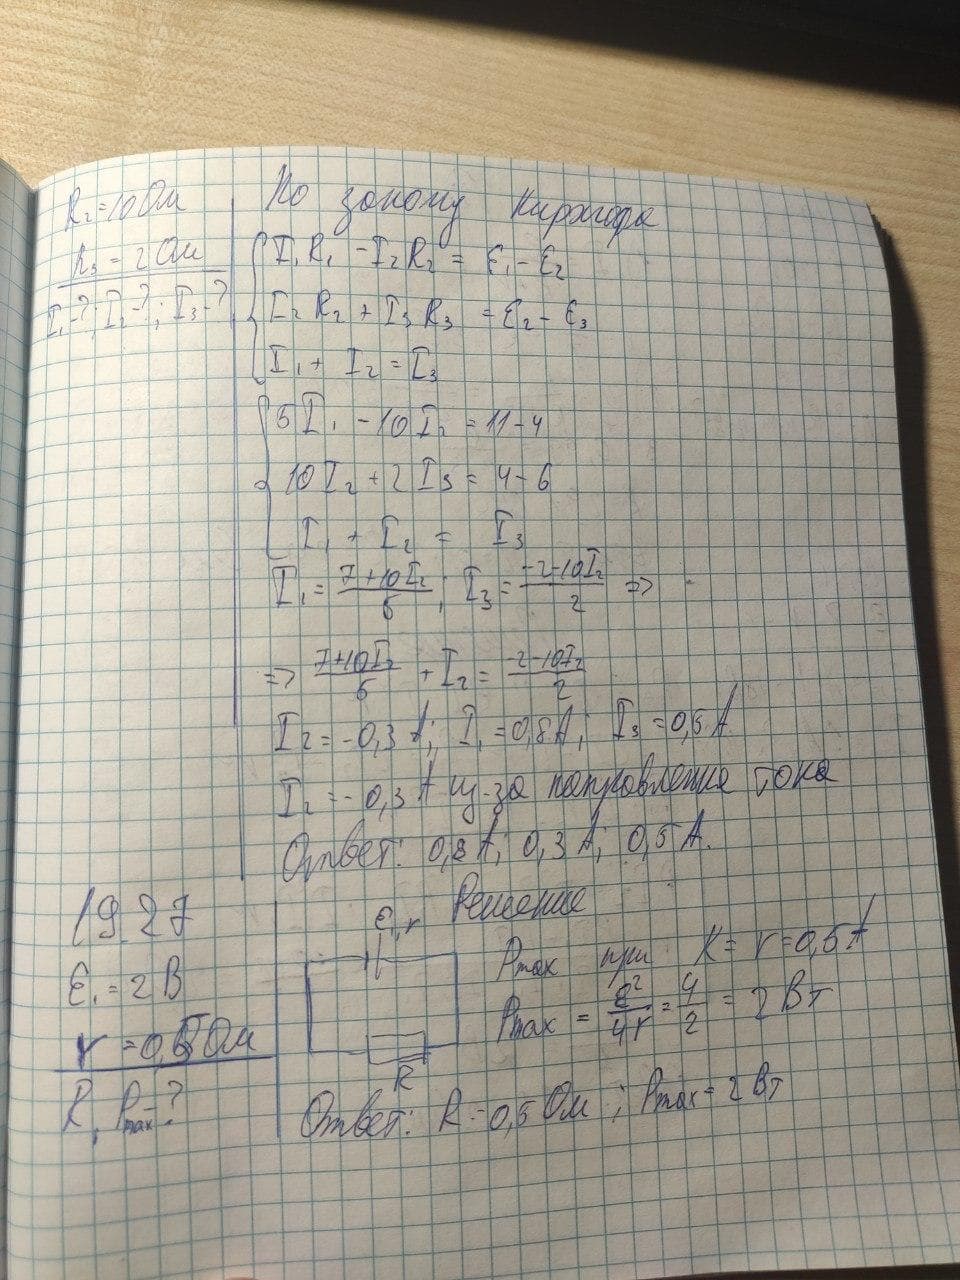 R₂ = 10 Ом
R₃ = 2 Ом
I₁-?; I₂-?; I₃-?
По закону Кирхгофа
I₁R₁ - I₂R₂ = ε₁ - ε₂
I₂R₂ + I₃R₃ = ε₂ - ε₃
I₁ + I₂ = I₃
5I₁ - 10I₂ = 11 - 4
10I₂ + 2I₃ = 4 - 6
I₁ + I₂ = I₃
I₁ = (7+10I₂)/5; I₃ = (-2-10I₂)/2 =>
=> (7+10I₂)/5 + I₂ = (-2-10I₂)/2
I₂ = -0,3 А; I₁ = 0,8 А; I₃ = 0,5 А
I₂ = -0,3 А из-за направления тока
Ответ: 0,8 А; 0,3 А; 0,5 А.
19.27
ε₁ = 2 В
r = 0,5 Ом
R, Pmax-?
Решение
ε, r
R
Pmax при R = r = 0,5 А
Pmax = ε²/4r = 4/2 = 2 Вт
Ответ: R = 0,5 Ом; Pmax = 2 Вт